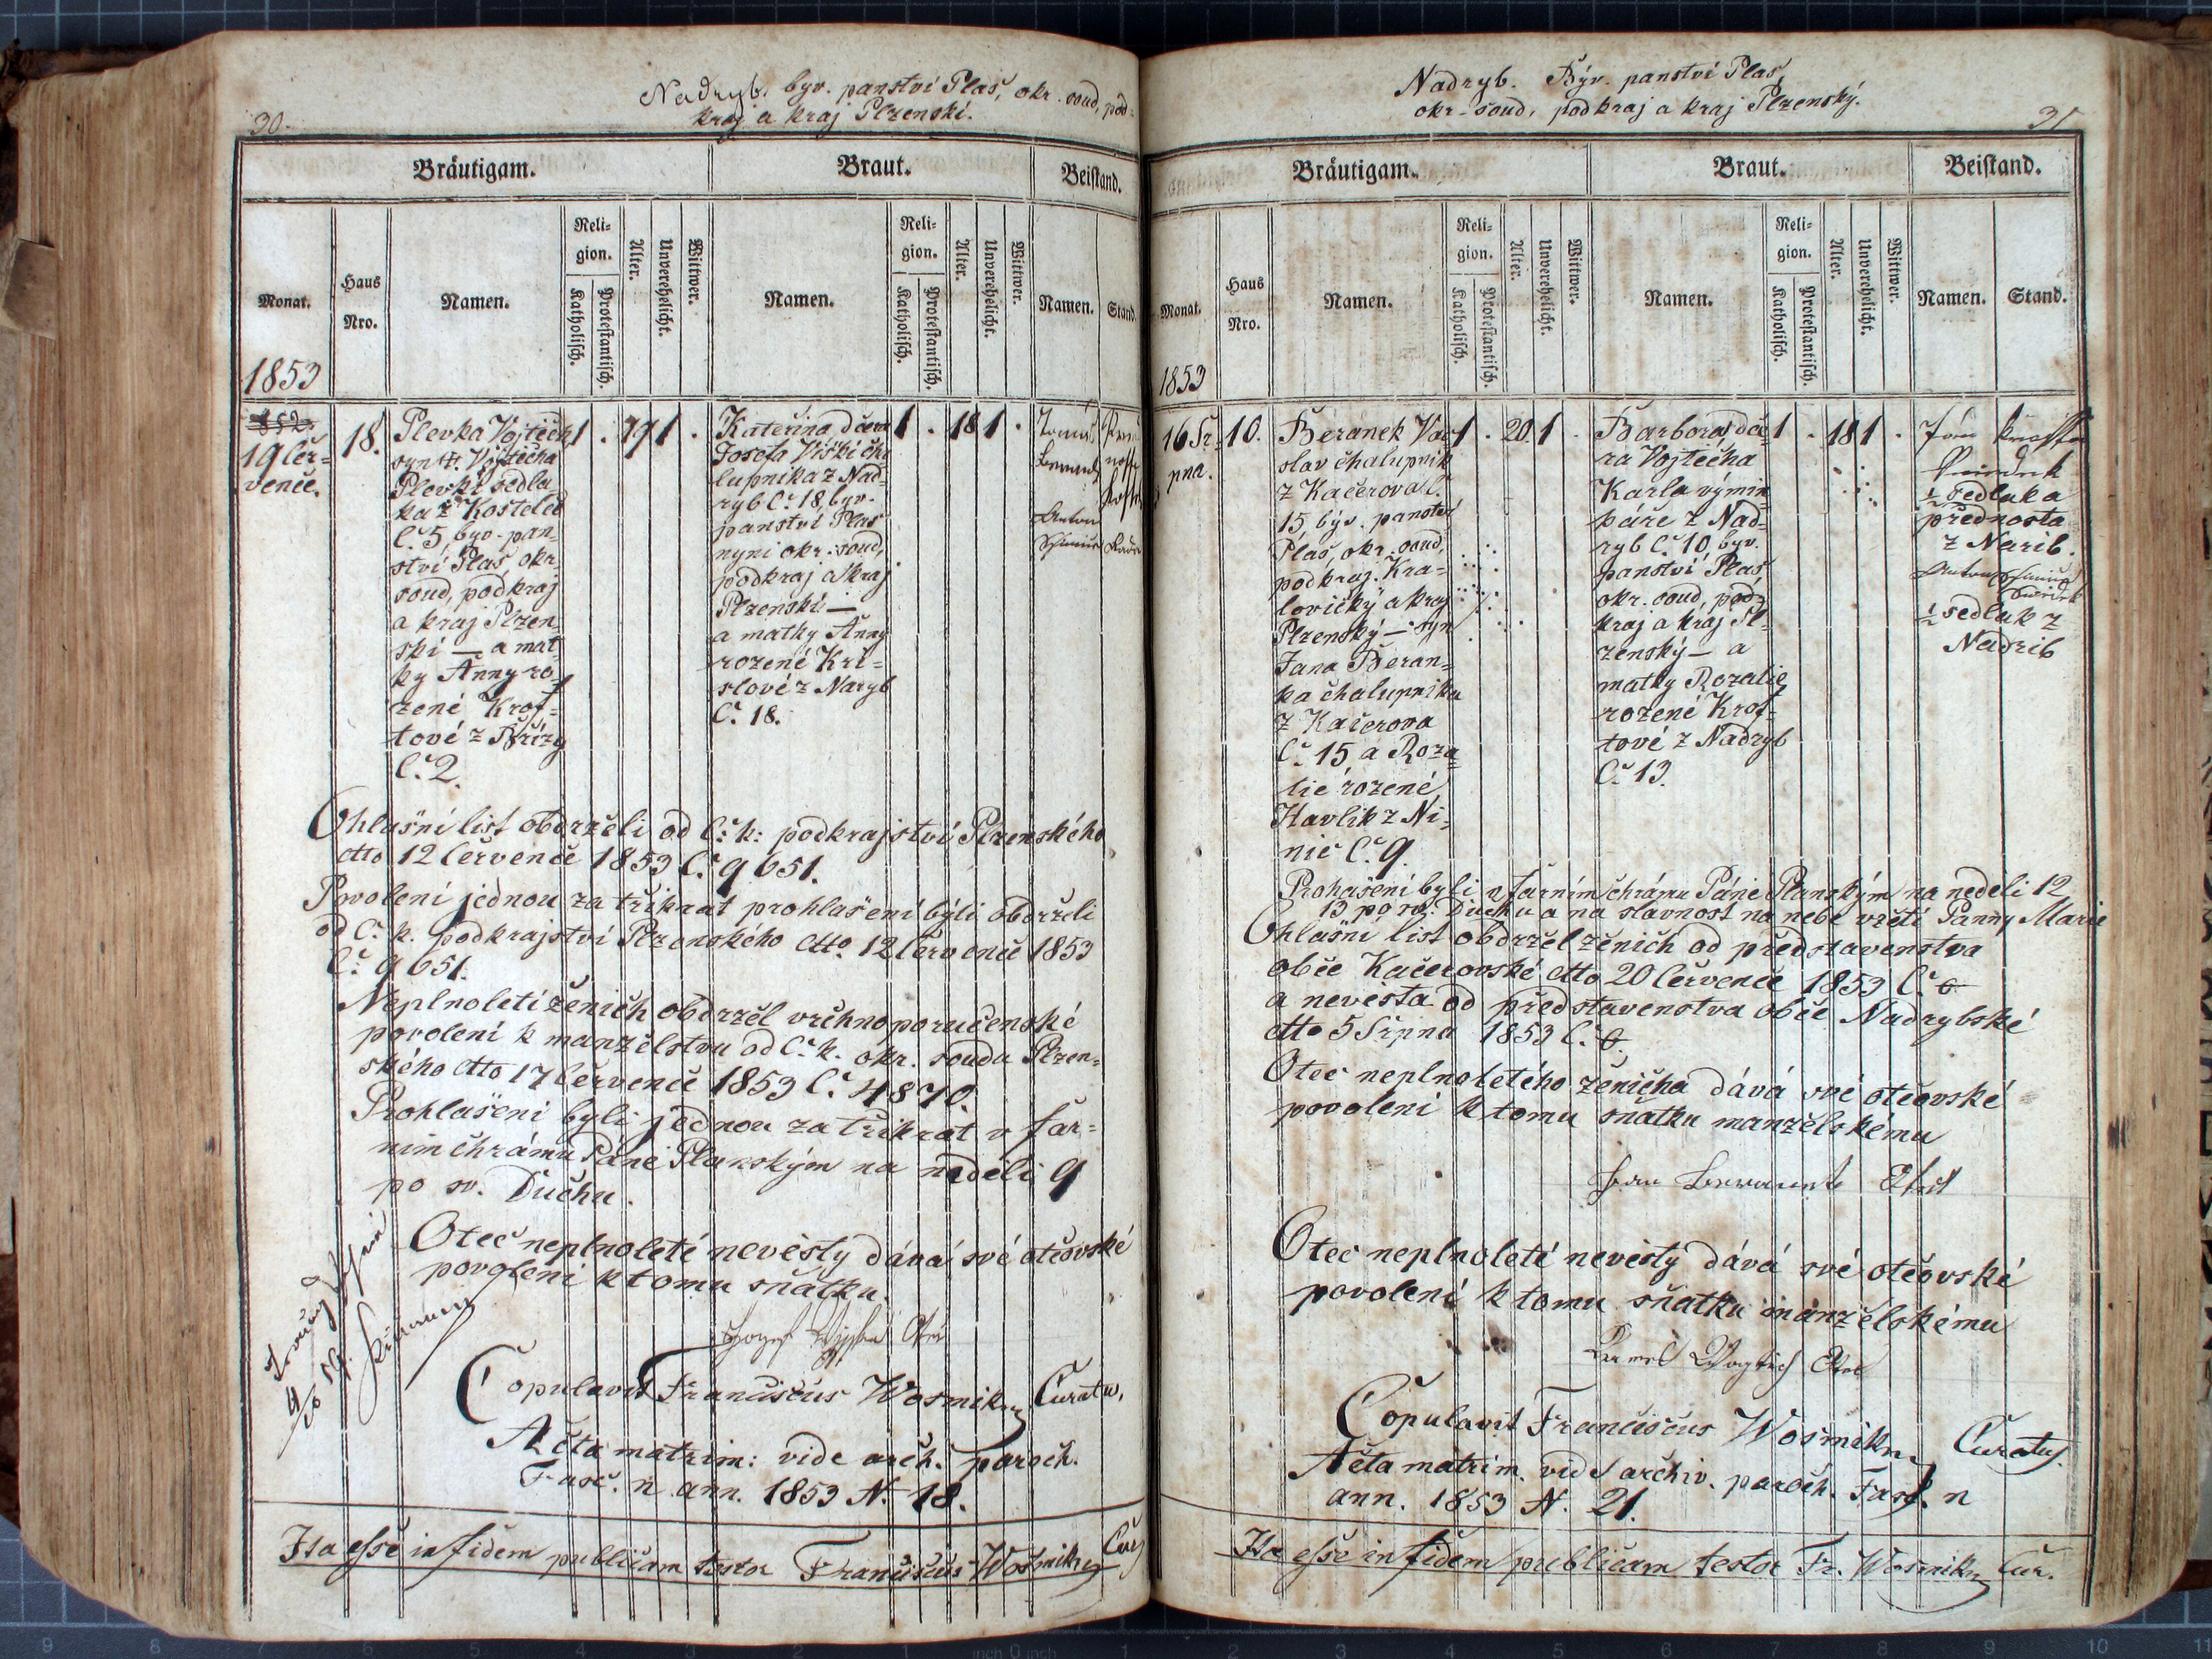 Nadryb. byv. panství Plas, okr. soud, pod-
kraj a kraj Plzenskí.
30.
Bräutigam.
Braut.
Beistand.
Monat.
Haus
Nro.
Namen.
Reli-
gion.
Katholisch.
Protestantisch.
Alter.
Unverehelicht.
Wittwer.
Namen.
Reli-
gion.
Katholisch.
Protestantisch.
Alter.
Unverehelicht.
Wittwer.
Namen.
Stand.
1853
19 čer-
vence.
18.
Plevka Vojtěch
syn Vojtěcha
Plevki sedla
ka z Kostelce
č. 5, byv. pan-
ství Plas, okr.
soud, podkraj
a kraj Plzen
skí — a mat
ky Anny ro-
zené Krof-
tové z Břízy
Č. 2.
1 . 1 .
Kateřina, dcera
Josefa Viški cha
lupníka z Nad-
ryb Č. 18, byv.
panství Plas
nyní okr. soud,
podkraj a kraj
Plzenskí —
a matky Anny
rozené Kri-
slové z Naryb
Č. 18.
1 . 18 1 .
Tomáš
Anton
Ohlašní list obdrželi od č. k. podkrajství Plzenského
dtto 12 července 1853 Č. 9651.
Povolení jednou za třikrát prohlašení býti obdrželi
od č. k. podkrajství Plzenského dtto. 12 července 1853
Č. 9651.
Neplnoletí ženich obdržel vrchnoporučenské
povolení k manželstvu od č. k. okr. soudu Plzen-
ského dtto 17 července 1853 Č. 4870.
Prohlašeni byli jednou za třikrát v far-
ním chrámu Páně Planským na neděli 9
po sv. Duchu.
Otec neplnoleté nevěsty dává své otcovské
povolení k tomu sňatku.
Copulavit Franciscus Wosmik Curatus,
Acta matrim: vide arch. paroch.
Fasc. n ann. 1853 N. 18.
Ita esse in fidem publicam testor Franciscus Wosmik Cur
Nadryb. Býv. panství Plas,
okr. soud, podkraj a kraj Plzenský.
31
Bräutigam.
Braut.
Beistand.
Monat.
Haus
Nro.
Namen.
Reli-
gion.
Katholisch.
Protestantisch.
Alter.
Unverehelicht.
Wittwer.
Namen.
Reli-
gion.
Katholisch.
Protestantisch.
Alter.
Unverehelicht.
Wittwer.
Namen.
Stand.
1853
16 Sr-
pna.
10.
Beránek Vác
slav chalupník
z Kačerova č.
15, býv. panství
Plas, okr. soud,
podkraj. Kra-
lovický a kraj
Plzenský — syn
Jana Beran-
ka chalupníka
z Kačerova
Č. 15 a Roza
lie rozené
Havlik z Ni-
nic Č. 9.
1 . 20 1 .
Barbora, dce
ra Vojtěcha
Karla výmin
káře z Nad-
ryb Č. 10, byv.
panství Plas
okr. soud, pod-
kraj a kraj Pl-
zenský — a
matky Rozalie
rozené Krof-
tové z Nadryb
Č. 13.
1 . 18 1 .
Jan Krofta
½ sedlák a
přednosta
z Narib.
Anton
½ sedlák z
Nadrib
Prohašeni byli v farním chrámu Páně Planským na neděli 12
13 po sv. Duchu a na slavnost na nebe vzetí Panny Marie
Ohlašní list obdržel ženich od představenstva
obce Kačerovské dtto 20 července 1853 Č. 0
a nevěsta od představenstva obce Nadrybské
dtto 5 Srpna 1853 Č. 0.
Otec neplnoletého ženicha dává své otcovské
povolení k tomu sňatku manželskému
Otec neplnoleté nevěsty dává své otcovské
povolení k tomu sňatku manželskému
Karel Wogtěch Otec
Copulavit Franciscus Wosmik Curatus.
Acta matrim. vide archiv. paroch. Fasc. n
ann. 1853 N. 21.
Ita esse in fidem publicam testor Fr. Wosmik Cur.